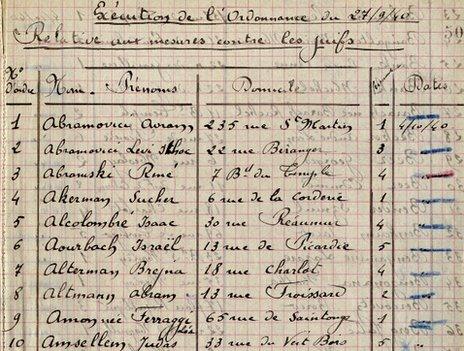 Exécution de l'Ordonnance du 27/9/40
Relative aux mesures contre les juifs 50
N° d'ordre Nom - Prénoms Domicile Dates
1 Abramovici Avram 235 rue St Martin 1 4/10/40
2 Abramovici Levi 22 rue Béranger 3 "
3 Abramski René 7 Bd du Temple 4 "
4 Akerman Sucher 6 rue de la Corderie 1 "
5 Alcolombré Isaac 30 rue Réaumur 4 "
6 Aourbach Israël 13 rue de Picardie 5 "
7 Alterman Brejna 18 rue Charlot 4 "
8 Altmann Abram 13 rue Froissard 2 "
9 Amon née Ferraggi 65 rue de Saintonge 1 "
10 Amsellem Judas 33 rue du Vert Bois 5 "